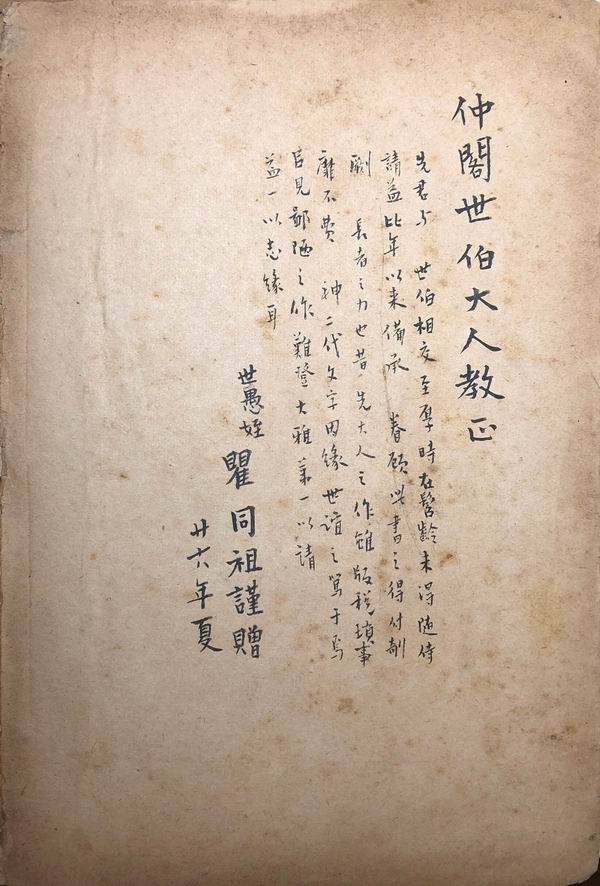 仲閣世伯大人教正
先君与 世伯相交至厚時在髫齡未得随侍
請益比年以来備承 眷顧此書之得付剞
劂 長者之力也昔 先大人之作雖版税瑣事
靡不費 神二代文字因緣世誼之篤于焉
官見鄙陋之作難登大雅第一以請
益一以志緣耳
世愚姪 瞿同祖謹贈
廿六年夏